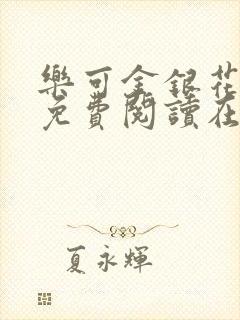 樂可金銀花
免費閱讀在
夏永輝